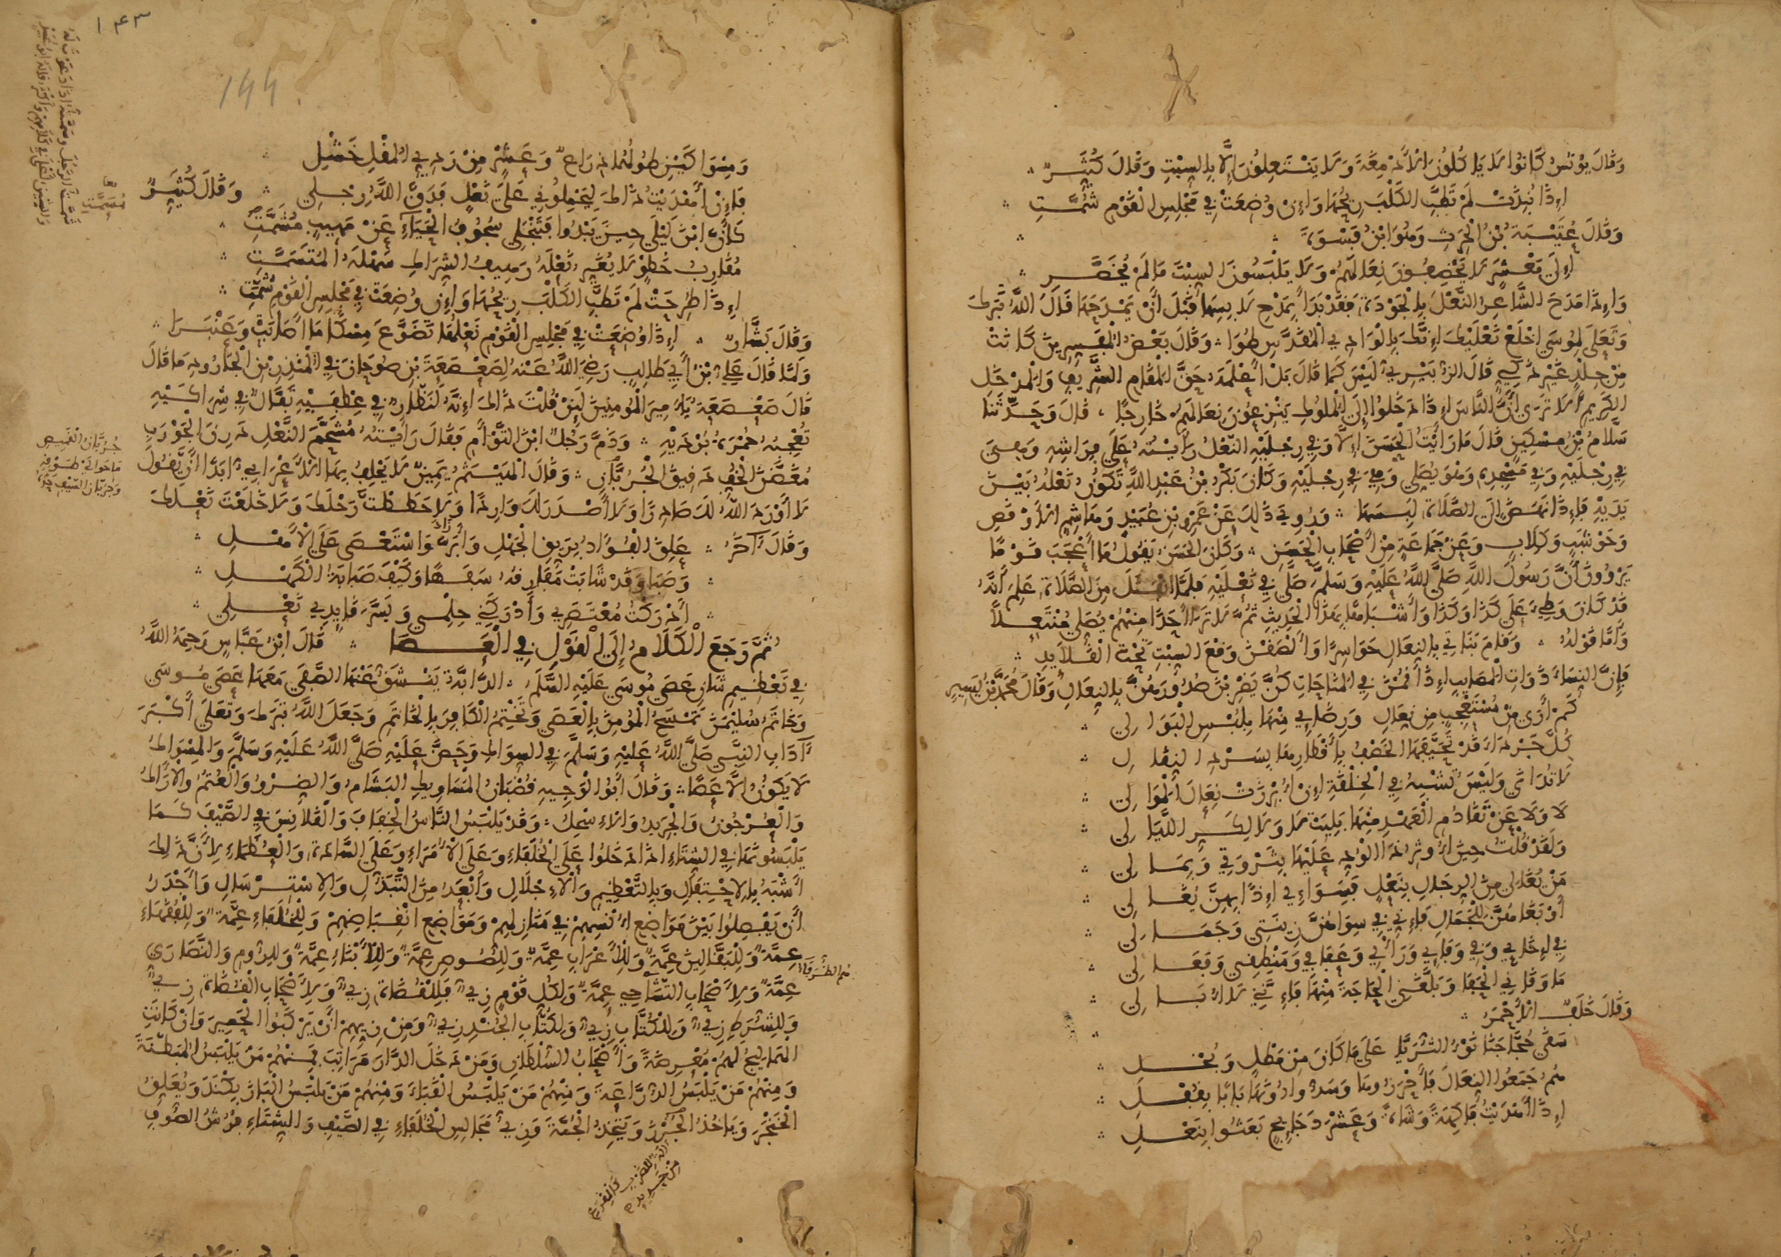 وَقَالَ يُونُسُ كَانُوا لَا يَأْكُلُونَ الْأَدْمِغَةَ وَلَا يَنْتَعِلُونَ إِلَّا بِالسِّبْتِ وَقَالَ كُثَيِّرٌ
إِذَا نُبِذَتْ لَمْ تَطَّبِ الْكَلْبَ رِيحُهَا وَإِنْ وُضِعَتْ فِي مَجْلِسِ الْقَوْمِ شُمَّتِ
وَقَالَ عُتَيْبَةُ بْنُ الْحَرِثِ وَهُوَ ابْنُ فَسْوَةَ
إِلَى مَعْشَرٍ لَا يَخْصِفُونَ نِعَالَهُمْ وَلَا يَلْبَسُونَ السِّبْتَ مَا لَمْ يُخَصَّرِ
وَإِذَا مَدَحَ الشَّاعِرُ النَّعْلَ بِالْجَوْدَةِ فَقَدْ بَدَأَ بِمَدْحِ لَابِسِهَا قَبْلَ أَنْ يَمْدَحَهَا قَالَ اللَّهُ تَبَرَكَ
وَتَعَلَى لِمُوسَى اخْلَعْ نَعْلَيْكَ إِنَّكَ بِالْوَادِ الْمُقَدَّسِ طُوًا وَقَالَ بَعْضُ الْمُفَسِّرِينَ كَانَتْ
مِنْ جِلْدٍ غَيْرِ ذَكِيٍّ قَالَ الزُّبَيْرِيُّ لَيْسَ كَمَا قَالَ بَلْ أَعْلَمَهُ حَقَّ الْمَقَامِ الشَّرِيفِ وَالْمَدْخَلِ
الْكَرِيمِ أَلَا تَرَى أَنَّ النَّاسَ إِذَا دَخَلُوا إِلَى الْمُلُوكِ يَنْزِعُونَ نِعَالَهُمْ خَارِجًا قَالَ وَحَدَّثَنَا
سَلَّامُ بْنُ مِسْكِينٍ قَالَ مَا رَأَيْتُ الْحَسَنَ إِلَّا وَفِي رِجْلَيْهِ النَّعْلُ رَأَيْتُهُ عَلَى فِرَاشِهِ وَهِيَ
فِي رِجْلَيْهِ وَفِي مَسْجِدِهِ وَهُوَ يُصَلِّي وَهِيَ فِي رِجْلَيْهِ وَكَانَ بَكْرُ بْنُ عَبْدِ اللَّهِ تَكُونُ نَعْلُهُ بَيْنَ
يَدَيْهِ فَإِذَا نَهَضَ إِلَى الصَّلَاةِ لَبِسَهَا وَرُوِيَ ذَلِكَ عَنْ عَمْرِو بْنِ عُبَيْدٍ وَهَاشِمٍ الْأَوْقَصِ
وَحَوْشَبٍ وَكِلَابٍ وَعَنْ جَمَاعَةٍ مِنْ أَصْحَابِ الْحَسَنِ وَكَانَ الْحَسَنُ يَقُولُ مَا أَعْجَبَ قَوْمًا
يَرْوُونَ أَنَّ رَسُولَ اللَّهِ صَلَّى اللَّهُ عَلَيْهِ وَسَلَّمَ صَلَّى فِي نَعْلَيْهِ فَلَمَّا انْفَتَلَ مِنَ الصَّلَاةِ عَلِمَ أَنَّهُ
قَدْ كَانَ وَطِئَ عَلَى كَذَا وَكَذَا وَأَشْبَاهًا لِهَذَا الْحَدِيثِ ثُمَّ لَا تَرَى أَحَدًا مِنْهُمْ يُصَلِّي مُنْتَعِلًا
وَأَمَّا قَوْلُهُ وَقَامَ بَنَاتِي بِالنِّعَالِ حَوَاسِرًا وَأَلْصَقْنَ وَقْعَ السِّبْتِ تَحْتَ الْقَلَائِدِ
فَإِنَّ النِّسَاءَ ذَوَاتِ الْمَصَائِبِ إِذَا قُمْنَ فِي الْمَنَاحَاتِ كُنَّ يَضْرِبْنَ صُدُورَهُنَّ بِالنِّعَالِ وَقَالَ مُحَمَّدُ بْنُ يَسِيرٍ
كَمْ أُرَى مِنْ مُسْتَعْجِبٍ مِنْ نِعَالِي وَرِضَائِي مِنْهَا بِلُبْسِ الْبَوَالِي
كُلُّ جَرْدَاءَ قَدْ تَحَيَّفَهَا الْخَصْفُ بِأَقْطَارِهَا بِسَرْدِ النِّقَالِ
لَا تُدَانَى وَلَيْسَ تُشْبِهُ فِي الْخِلْقَةِ إِنْ أُبْرِزَتْ نِعَالَ الْمَوَالِي
لَا وَلَا عَنْ تَقَادُمِ الْعَهْدِ مِنْهَا بَلِيَتْ لَا وَلَا لِكَرِّ اللَّيَالِي
وَلَقَدْ قُلْتُ حِينَ أُوثِرُ ذَا الْوُدِّ عَلَيْهَا بِثَرْوَتِي وَبِمَالِي
مَنْ يُغَالِي مِنَ الرِّجَالِ بِنَعْلٍ فَسَوَائِي إِذًا بِهِنَّ يُغَالِي
أَوْ بَغَاهُنَّ لِلْجَمَالِ فَإِنِّي فِي سِوَاهُنَّ زِينَتِي وَجَمَالِي
فِي إِخَائِي وَفِي وَفَائِي وَرَأْيِي وَعَفَافِي وَمَنْطِقِي وَفَعَالِي
مَا وَقَانِي الْحَفَا وَبَلَّغَنِي الْحَاجَةَ مِنْهَا فَإِنَّنِي لَا أُبَالِي
وَقَالَ خَلَفٌ الْأَحْمَرُ
سَقَى حُجَّاجَنَا نَوْءُ الثُّرَيَّا عَلَى مَا كَانَ مِنْ مَطْلٍ وَبُخْلِ
هُمْ جَمَعُوا النِّعَالَ فَأَحْرَزُوهَا وَسَدُّوا دُونَهَا بَابًا بِقُفْلِ
إِذَا أَهْدَيْتُ فَاكِهَةً وَشَاةً وَعَشْرَ دَجَائِجٍ بَعَثُوا بِنَعْلِ
١٤٣
144
وَمِسْوَاكَيْنِ طُولُهُمَا ذِرَاعٌ وَعَشْرٌ مِنْ رَدِيِّ الْمُقْلِ خَشْلِ
فَإِنْ أَهْدَيْتُ ذَاكَ لِيَحْمِلُونِي عَلَى نَعْلٍ فَدَقَّ اللَّهُ رِجْلِي وَقَالَ كُثَيِّرٌ
كَأَنَّ ابْنَ لَيْلَى حِينَ يَبْدُوا فَتَنْجَلِي سُجُوفُ الْخِبَاءِ عَنْ مَهِيبٍ مُشَمَّتِ
مُقَارِبُ خَطْوٍ لَا يُغَيِّرُ نَعْلَهُ رَهِيفُ الشِّرَاكِ سَهْلَةُ الْمُتَسَمَّتِ
إِذَا طُرِحَتْ لَمْ تَطَّبِ الْكَلْبَ رِيحُهَا وَإِنْ وُضِعَتْ فِي مَجْلِسِ الْقَوْمِ شُمَّتِ
وَقَالَ بَشَّارٌ إِذَا وُضِعَتْ فِي مَجْلِسِ الْقَوْمِ نَعْلُهَا تَضَوَّعَ مِسْكًا مَا أَصَابَتْ وَعَنْبَرَا
وَلَمَّا قَالَ عَلِيُّ بْنُ أَبِي طَالِبٍ رَضِيَ اللَّهُ عَنْهُ لِصَعْصَعَةَ بْنِ صُوحَانَ فِي الْمُنْذِرِ بْنِ الْجَارُودِ مَا قَالَ
قَالَ صَعْصَعَةُ يَا أَمِيرَ الْمُؤْمِنِينَ لَئِنْ قُلْتَ ذَاكَ إِنَّهُ لَنَظَّارٌ فِي عِطْفَيْهِ تَفَّالٌ فِي شِرَاكَيْهِ
تُعْجِبُهُ حُمْرَةُ بُرْدَيْهِ وَذَمَّ رَجُلٌ ابْنَ التَّوْأَمِ فَقَالَ رَأَيْتُهُ مُشَحَّمَ النَّعْلِ دَرِنَ الْجَوْرَبِ
مُغَضَّنَ الْخُفِّ دَقِيقَ الْجُرُبَّانِ وَقَالَ الْهَيْثَمُ يَمِينٌ لَا يَحْلِفُ بِهَا الْأَعْرَابِيُّ أَبَدًا أَنْ يَقُولَ
لَا أَوْرَدَ اللَّهُ لَكَ صَادِرًا وَلَا أَصْدَرَ لَكَ وَارِدًا وَلَا حَطَطْتَ رَحْلَكَ وَلَا خَلَعْتَ نَعْلَكَ
وَقَالَ آخَرُ عَلِقَ الْفُؤَادُ بِرَيِّقِ الْجَهْلِ وَأَبَرَّ وَاسْتَعْصَى عَلَى الْأَهْلِ
وَصَبَا وَقَدْ شَابَتْ مَفَارِقُهُ سَفَهًا وَكَيْفَ صَبَابَةُ الْكَهْلِ
أَدْرَكْتُ مُعْتَصَرِي وَأَدْرَكَنِي حِلْمِي وَيَسَّرَ قَائِدِي نَعْلِي
ثُمَّ رَجَعَ الْكَلَامُ إِلَى الْقَوْلِ فِي الْعَصَا قَالَ ابْنُ عَبَّاسٍ رَحِمَهُ اللَّهُ
فِي تَعْظِيمِ شَأْنِ عَصَى مُوسَى عَلَيْهِ السَّلَمُ الدَّابَّةُ يَنْشَقُّ عَنْهَا الصَّفَى مَعَهَا عَصَى مُوسَى
وَخَاتَمُ سُلَيْمَنَ تَمْسَحُ الْمُؤْمِنَ بِالْعَصَى وَتَخْتِمُ الْكَافِرَ بِالْخَاتَمِ وَجَعَلَ اللَّهُ تَبَرَكَ وَتَعَلَى أَكْبَرَ
آدَابِ النَّبِيِّ صَلَّى اللَّهُ عَلَيْهِ وَسَلَّمَ فِي السِّوَاكِ وَحَضَّ عَلَيْهِ صَلَّى اللَّهُ عَلَيْهِ وَسَلَّمَ وَالْمِسْوَاكُ
لَا يَكُونُ إِلَّا عَصًا وَقَالَ أَبُو الْوَجِيهِ قُضْبَانُ الْمَسَاوِيكِ الْبَشَامُ وَالضِّرْوُ وَالْعُتُمُ وَالْأَرَاكُ
وَالْعُرْجُونُ وَالْجَرِيدُ وَالْإِسْحِلُ وَقَدْ يَلْبَسُ النَّاسُ الْخِفَافَ وَالْقَلَانِسَ فِي الصَّيْفِ كَمَا
يَلْبَسُونَهَا فِي الشِّتَاءِ إِذَا دَخَلُوا عَلَى الْخُلَفَاءِ وَعَلَى الْأُمَرَاءِ وَعَلَى السَّادَةِ وَالْعُظَمَاءِ لِأَنَّ ذَلِكَ
أَشْبَهُ بِالِاحْتِفَالِ وَبِالتَّعْظِيمِ وَالْإِجْلَالِ وَأَبْعَدُ مِنَ التَّبَذُّلِ وَالِاسْتِرْسَالِ وَأَجْدَرُ
أَنْ يَفْصِلُوا بَيْنَ مَوَاضِعِ أُنْسِهِمْ فِي مَنَازِلِهِمْ وَمَوَاضِعِ انْقِبَاضِهِمْ وَلِلْخُلَفَاءِ عِمَّةٌ وَلِلْفُقَهَاءِ
عِمَّةٌ وَلِلْبَقَّالِينَ عِمَّةٌ وَلِلْأَعْرَابِ عِمَّةٌ وَلِلُّصُوصِ عِمَّةٌ وَلِلْأَبْنَاءِ عِمَّةٌ وَلِلرُّومِ وَالنَّصَارَى
عِمَّةٌ وَلِأَصْحَابِ التَّشَاجِي عِمَّةٌ وَلِكُلِّ قَوْمٍ زِيٌّ فَلِلْقُضَاةِ زِيٌّ وَلِأَصْحَابِ الْقُضَاةِ زِيٌّ
وَلِلشُّرَطِ زِيٌّ وَلِلْكُتَّابِ زِيٌّ وَلِكُتَّابِ الْجُنْدِ زِيٌّ وَمِنْ زِيِّهِمْ أَنْ يَرْكَبُوا الْحَمِيرَ وَإِنْ كَانَتِ
الْهَمَالِيجُ لَهُمْ مُعْرِضَةً وَأَصْحَابُ السُّلْطَانِ وَمَنْ دَخَلَ الدَّارَ مَرَاتِبَ فَمِنْهُمْ مَنْ يَلْبَسُ الْمُبَطَّنَةَ
وَمِنْهُمْ مَنْ يَلْبَسُ الدُّرَّاعَةَ وَمِنْهُمْ مَنْ يَلْبَسُ الْقَبَاءَ وَمِنْهُمْ مَنْ يَلْبَسُ الْبَازَبْكَنْدَ وَيُعَلِّقُ
الْخَنْجَرَ وَيَأْخُذُ الْجُرْزَ وَيَتَّخِذُ الْجُمَّةَ وَزِيُّ مَجَالِسِ الْخُلَفَاءِ فِي الصَّيْفِ وَالشِّتَاءِ فُرُشُ الصُّوفِ